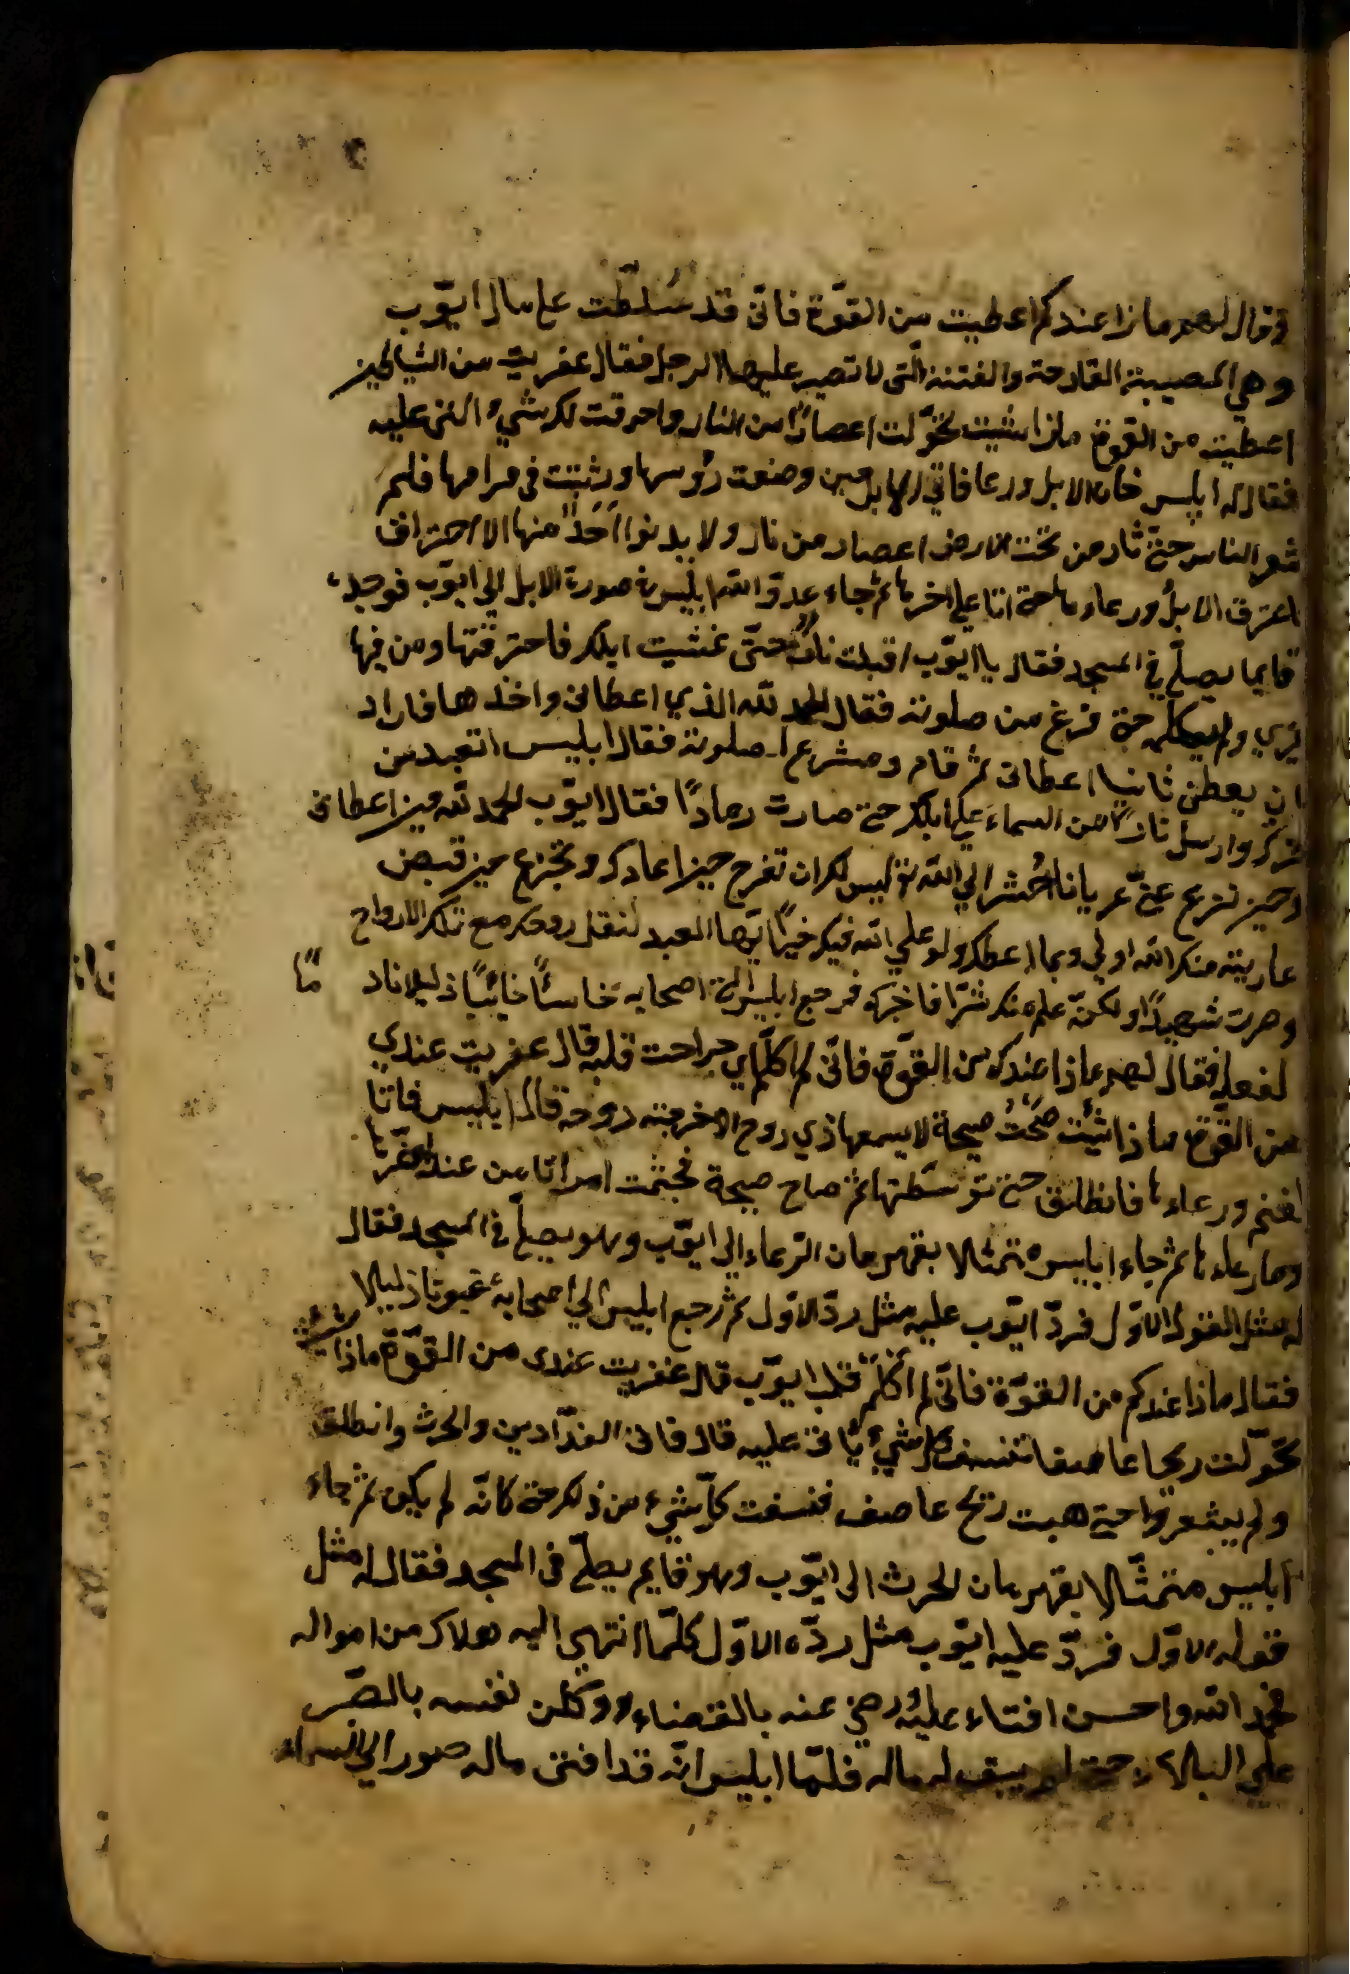 وقال لهم ماذا عندكم اعطيت من القوّة فانّى قد سُلّطت على مال ايّوب
وهى المصيبة القادحة والفتنة الّتى لا تصبر عليها الرجل فقال عفريت من الشياطين
اعطيت من القوة ماذا شيت تحوّلت اعصارًا من النار واحرقت كل شيء اتنى عليه
فقال له ابليس فات الابل ورعا فاتي الابل حين وضعت رؤسها وثبتت فى مراعها فلم
شعر الناس حتى ثار من تحت الارض اعصار من نار ولا يدنوا احدٌ منها الا احترق
احترق الابل ورعاءها حتى اتا على اخرها ثم جاء عدوّ الله ابليس فى صورة الابل الى ايّوب فوجده
قايما يصلّى فى المسجد فقال يا ايّوب اقبلت نارٌ حتّى غشيت ابلك فاحترقتها ومن فيها
غيرى ولم يكلمه حتى فرغ من صلوته فقال الحمد لله الذي اعطانى واخذها فاراد
ان يعطى ثانيا اعطانى ثم قام وشرع الى صلوته فقال ابليس اتعبد من
وارسل نارًا من السماء على ابلك حتى صارت رمادًا فقال ايّوب الحمد لله حين اعطانى
وحين نزع عنّى عريانا احُشر الى الله تع ليس لك ان تفرح حين اعادك وتجزع حين قبض
عاريته منك الله اولى وبما اعطاك ولو علم الله فيك خيرًا ايّها العبد لنقل روحك مع تلك الارواح
وصرت شهيدًا ولكنّه علم منك شرًّا فاخرك فرجع ابليس الى اصحابه خاسئًا خائبًا ذليلا ناد مًا
لفعله فقال لهم ماذا عندكم من القوّة فانّى لم اكلّم اي جراحت قلبه قال عفريت عندى
من القوّة ماذا شئت صَحْتُ صيحة لا يسمعها ذى روح الا خرجت روحه قال ابليس فاتا
الغنم ورعاءها فانطلق حتى توسّطها ثم صاح صيحة فجثمت امواتا من عند اخرها
ومار عاءها ثم جاء ابليس متمثّلا بقهرمان الرّعاء الى ايّوب وهو يصلّى فى المسجد فقال
له مثل القول الاوّل فردّ ايّوب عليه مثل ردّ الاوّل ثم رجع ابليس الى اصحابه ذليلا
فقال ماذا عندكم من القوّة فانّى لم اكلّم قلب ايّوب قال عفريت عندى من القوّة ماذا شئت
تحوّلت ريحا عاصفا تنسف كل شيء ياتى عليه قال فاتى الفدّادين والحرث وانطلق
ولم يشعروا حتى هبت ريح عاصف فنسفت كلّ شيء من ذلك حتى كانّه لم يكن ثم جاء
ابليس متمثّلا بقهرمان الحرث الى ايّوب وهو قايم يصلّى فى المسجد فقال له مثل
قوله الاوّل فردّ عليه ايّوب مثل ردّه الاوّل كلّما انتهى اليه هلاك من امواله
حمد الله واحسن الثناء عليه ورضى عنه بالقضاء ووطن نفسه بالصّبر
على البلاء حتى لم يبق له ماله فلمّا ابليس انّه قد افنى ماله صور الى السماء